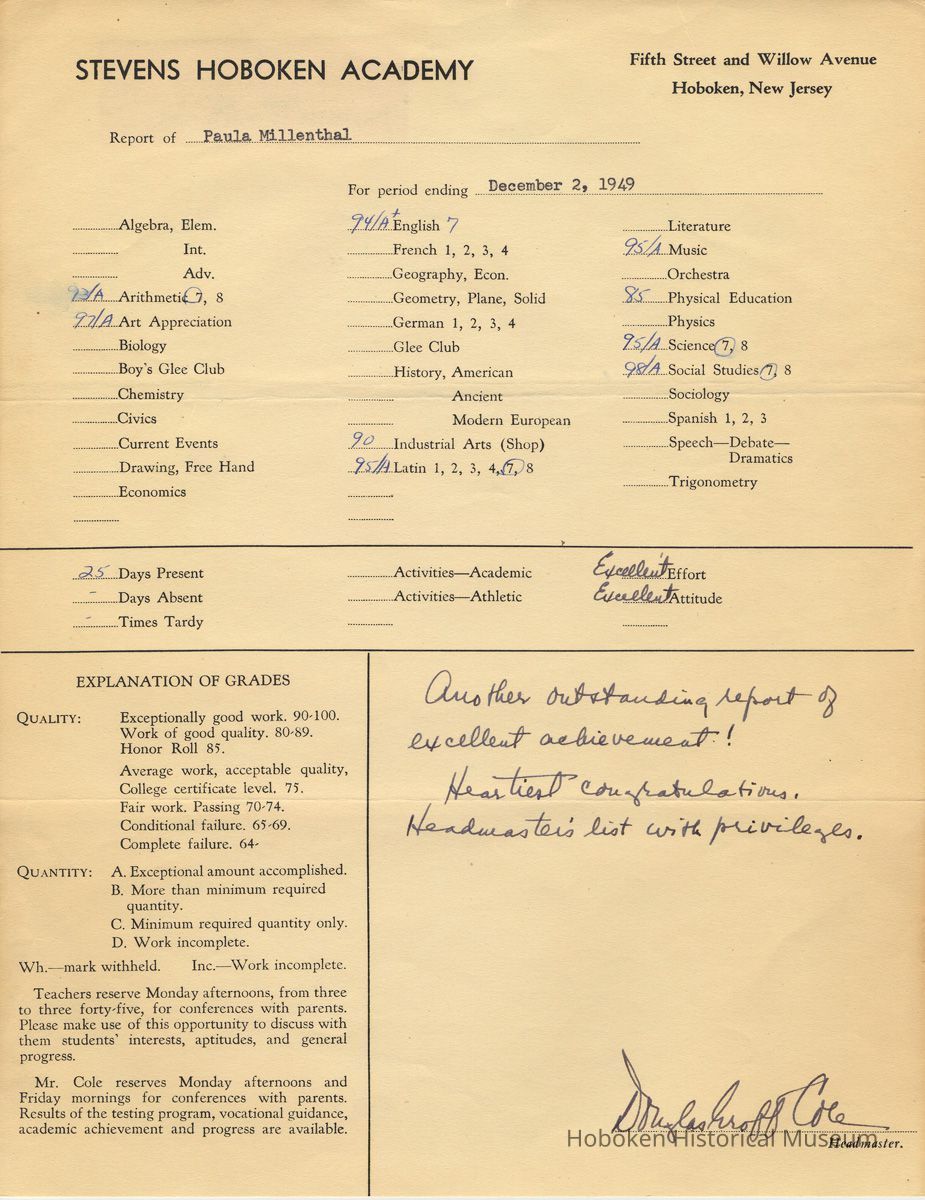 STEVENS HOBOKEN ACADEMY
Fifth Street and Willow Avenue
Hoboken, New Jersey
Report of Paula Millenthal
For period ending December 2, 1949
Algebra, Elem.
Int.
Adv.
93/A Arithmetic 7, 8
97/A Art Appreciation
Biology
Boy's Glee Club
Chemistry
Civics
Current Events
Drawing, Free Hand
Economics
94/A+ English 7
French 1, 2, 3, 4
Geography, Econ.
Geometry, Plane, Solid
German 1, 2, 3, 4
Glee Club
History, American
Ancient
Modern European
90 Industrial Arts (Shop)
95/A Latin 1, 2, 3, 4, 7, 8
Literature
95/A Music
Orchestra
85 Physical Education
Physics
95/A Science 7, 8
98/A Social Studies 7, 8
Sociology
Spanish 1, 2, 3
Speech—Debate—
Dramatics
Trigonometry
25 Days Present
- Days Absent
- Times Tardy
Activities—Academic
Activities—Athletic
Excellent Effort
Excellent Attitude
EXPLANATION OF GRADES
QUALITY: Exceptionally good work. 90-100.
Work of good quality. 80-89.
Honor Roll 85.
Average work, acceptable quality,
College certificate level. 75.
Fair work. Passing 70-74.
Conditional failure. 65-69.
Complete failure. 64-
QUANTITY: A. Exceptional amount accomplished.
B. More than minimum required
quantity.
C. Minimum required quantity only.
D. Work incomplete.
Wh.—mark withheld. Inc.—Work incomplete.
Teachers reserve Monday afternoons, from three
to three forty-five, for conferences with parents.
Please make use of this opportunity to discuss with
them students' interests, aptitudes, and general
progress.
Mr. Cole reserves Monday afternoons and
Friday mornings for conferences with parents.
Results of the testing program, vocational guidance,
academic achievement and progress are available.
Another outstanding report of
excellent achievement!
Heartiest congratulations.
Headmaster's list with privileges.
Douglas Groff Cole
Headmaster.
Hoboken Historical Museum